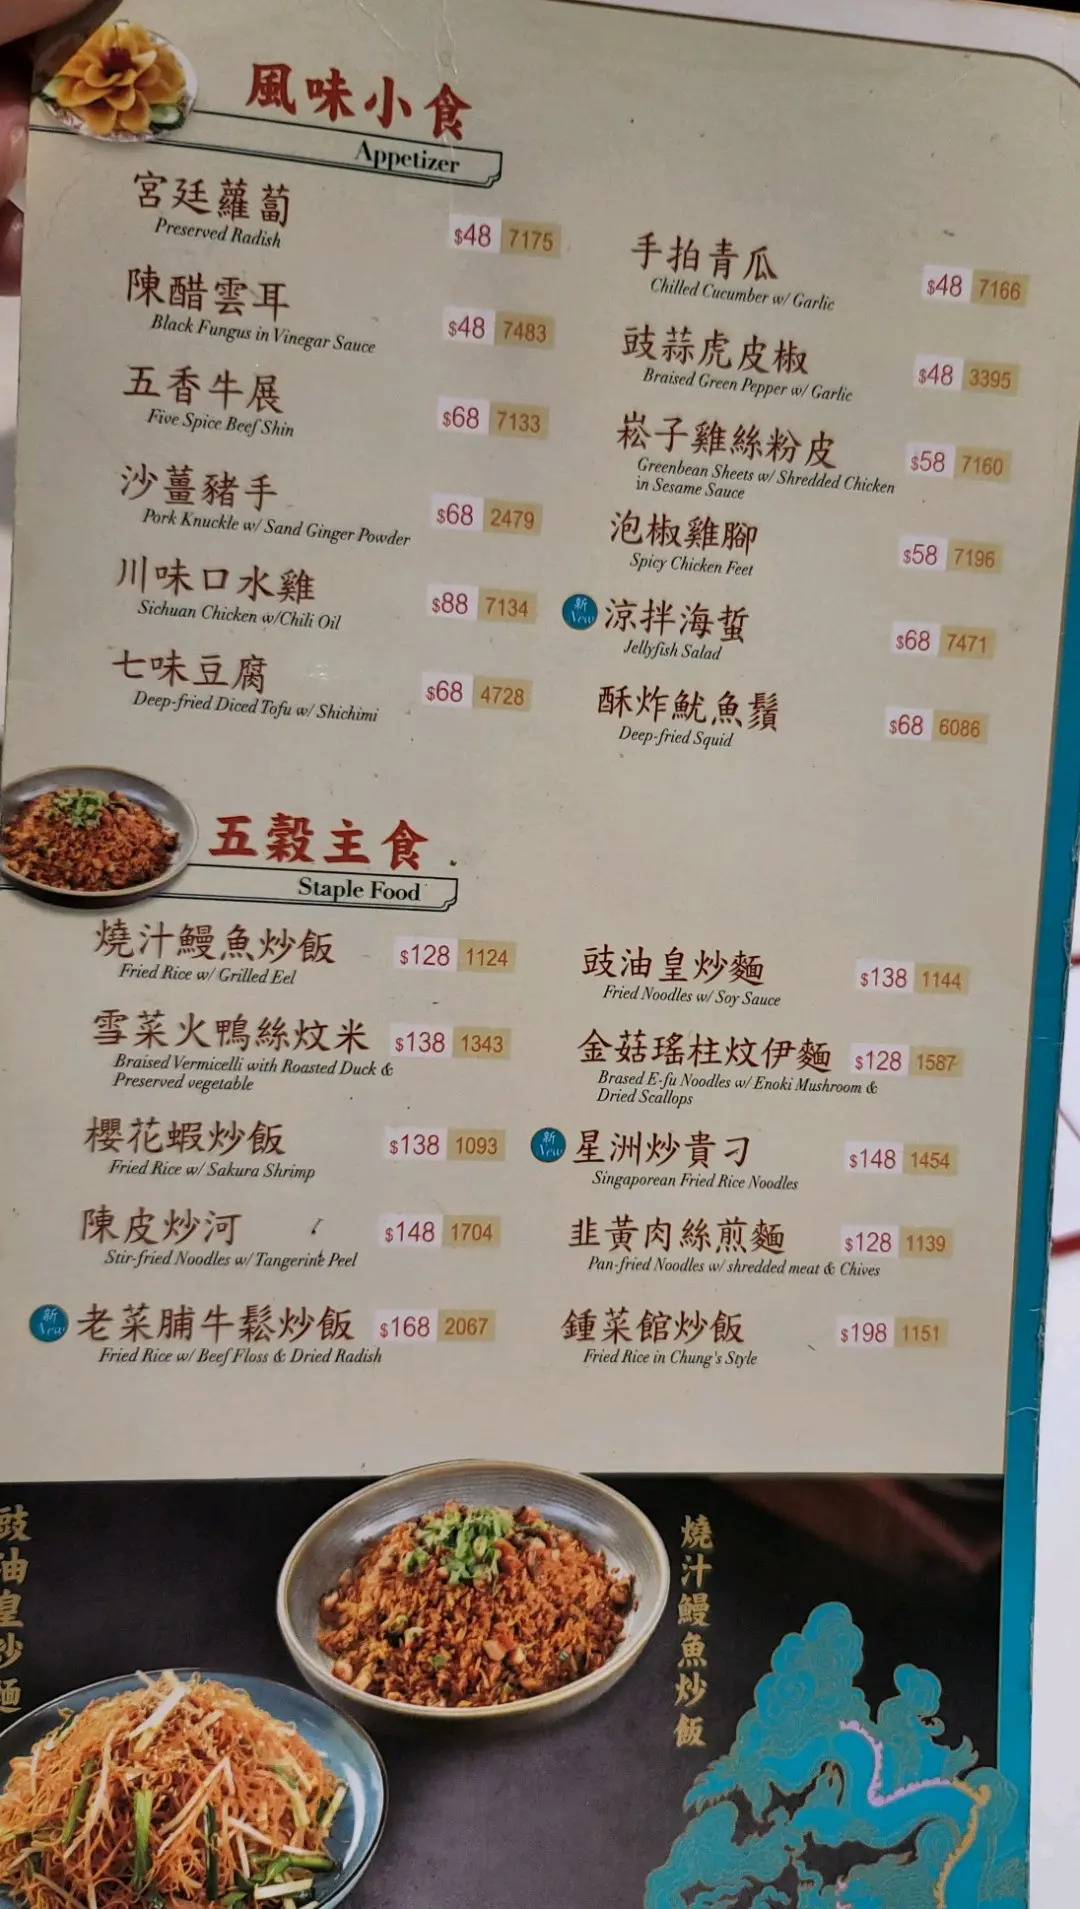 風味小食
Appetizer
宮廷蘿蔔
Preserved Radish
$48 7175
陳醋雲耳
Black Fungus in Vinegar Sauce
$48 7483
五香牛展
Five Spice Beef Shin
$68 7133
沙薑豬手
Pork Knuckle w/ Sand Ginger Powder
$68 2479
川味口水雞
Sichuan Chicken w/Chili Oil
$88 7134
七味豆腐
Deep-fried Diced Tofu w/ Shichimi
$68 4728
手拍青瓜
Chilled Cucumber w/ Garlic
$48 7166
豉蒜虎皮椒
Braised Green Pepper w/ Garlic
$48 3395
崧子雞絲粉皮
Greenbean Sheets w/ Shredded Chicken
in Sesame Sauce
$58 7160
泡椒雞腳
Spicy Chicken Feet
$58 7196
新
New
涼拌海蜇
Jellyfish Salad
$68 7471
酥炸魷魚鬚
Deep-fried Squid
$68 6086
五穀主食
Staple Food
燒汁鰻魚炒飯
Fried Rice w/ Grilled Eel
$128 1124
雪菜火鴨絲炆米
Braised Vermicelli with Roasted Duck &
Preserved vegetable
$138 1343
櫻花蝦炒飯
Fried Rice w/ Sakura Shrimp
$138 1093
陳皮炒河
Stir-fried Noodles w/ Tangerine Peel
$148 1704
新
New
老菜脯牛鬆炒飯
Fried Rice w/ Beef Floss & Dried Radish
$168 2067
豉油皇炒麵
Fried Noodles w/ Soy Sauce
$138 1144
金菇瑤柱炆伊麵
Brased E-fu Noodles w/ Enoki Mushroom &
Dried Scallops
$128 1587
新
New
星洲炒貴刁
Singaporean Fried Rice Noodles
$148 1454
韭黃肉絲煎麵
Pan-fried Noodles w/ shredded meat & Chives
$128 1139
鍾菜館炒飯
Fried Rice in Chung's Style
$198 1151
豉油皇炒麵
燒汁鰻魚炒飯